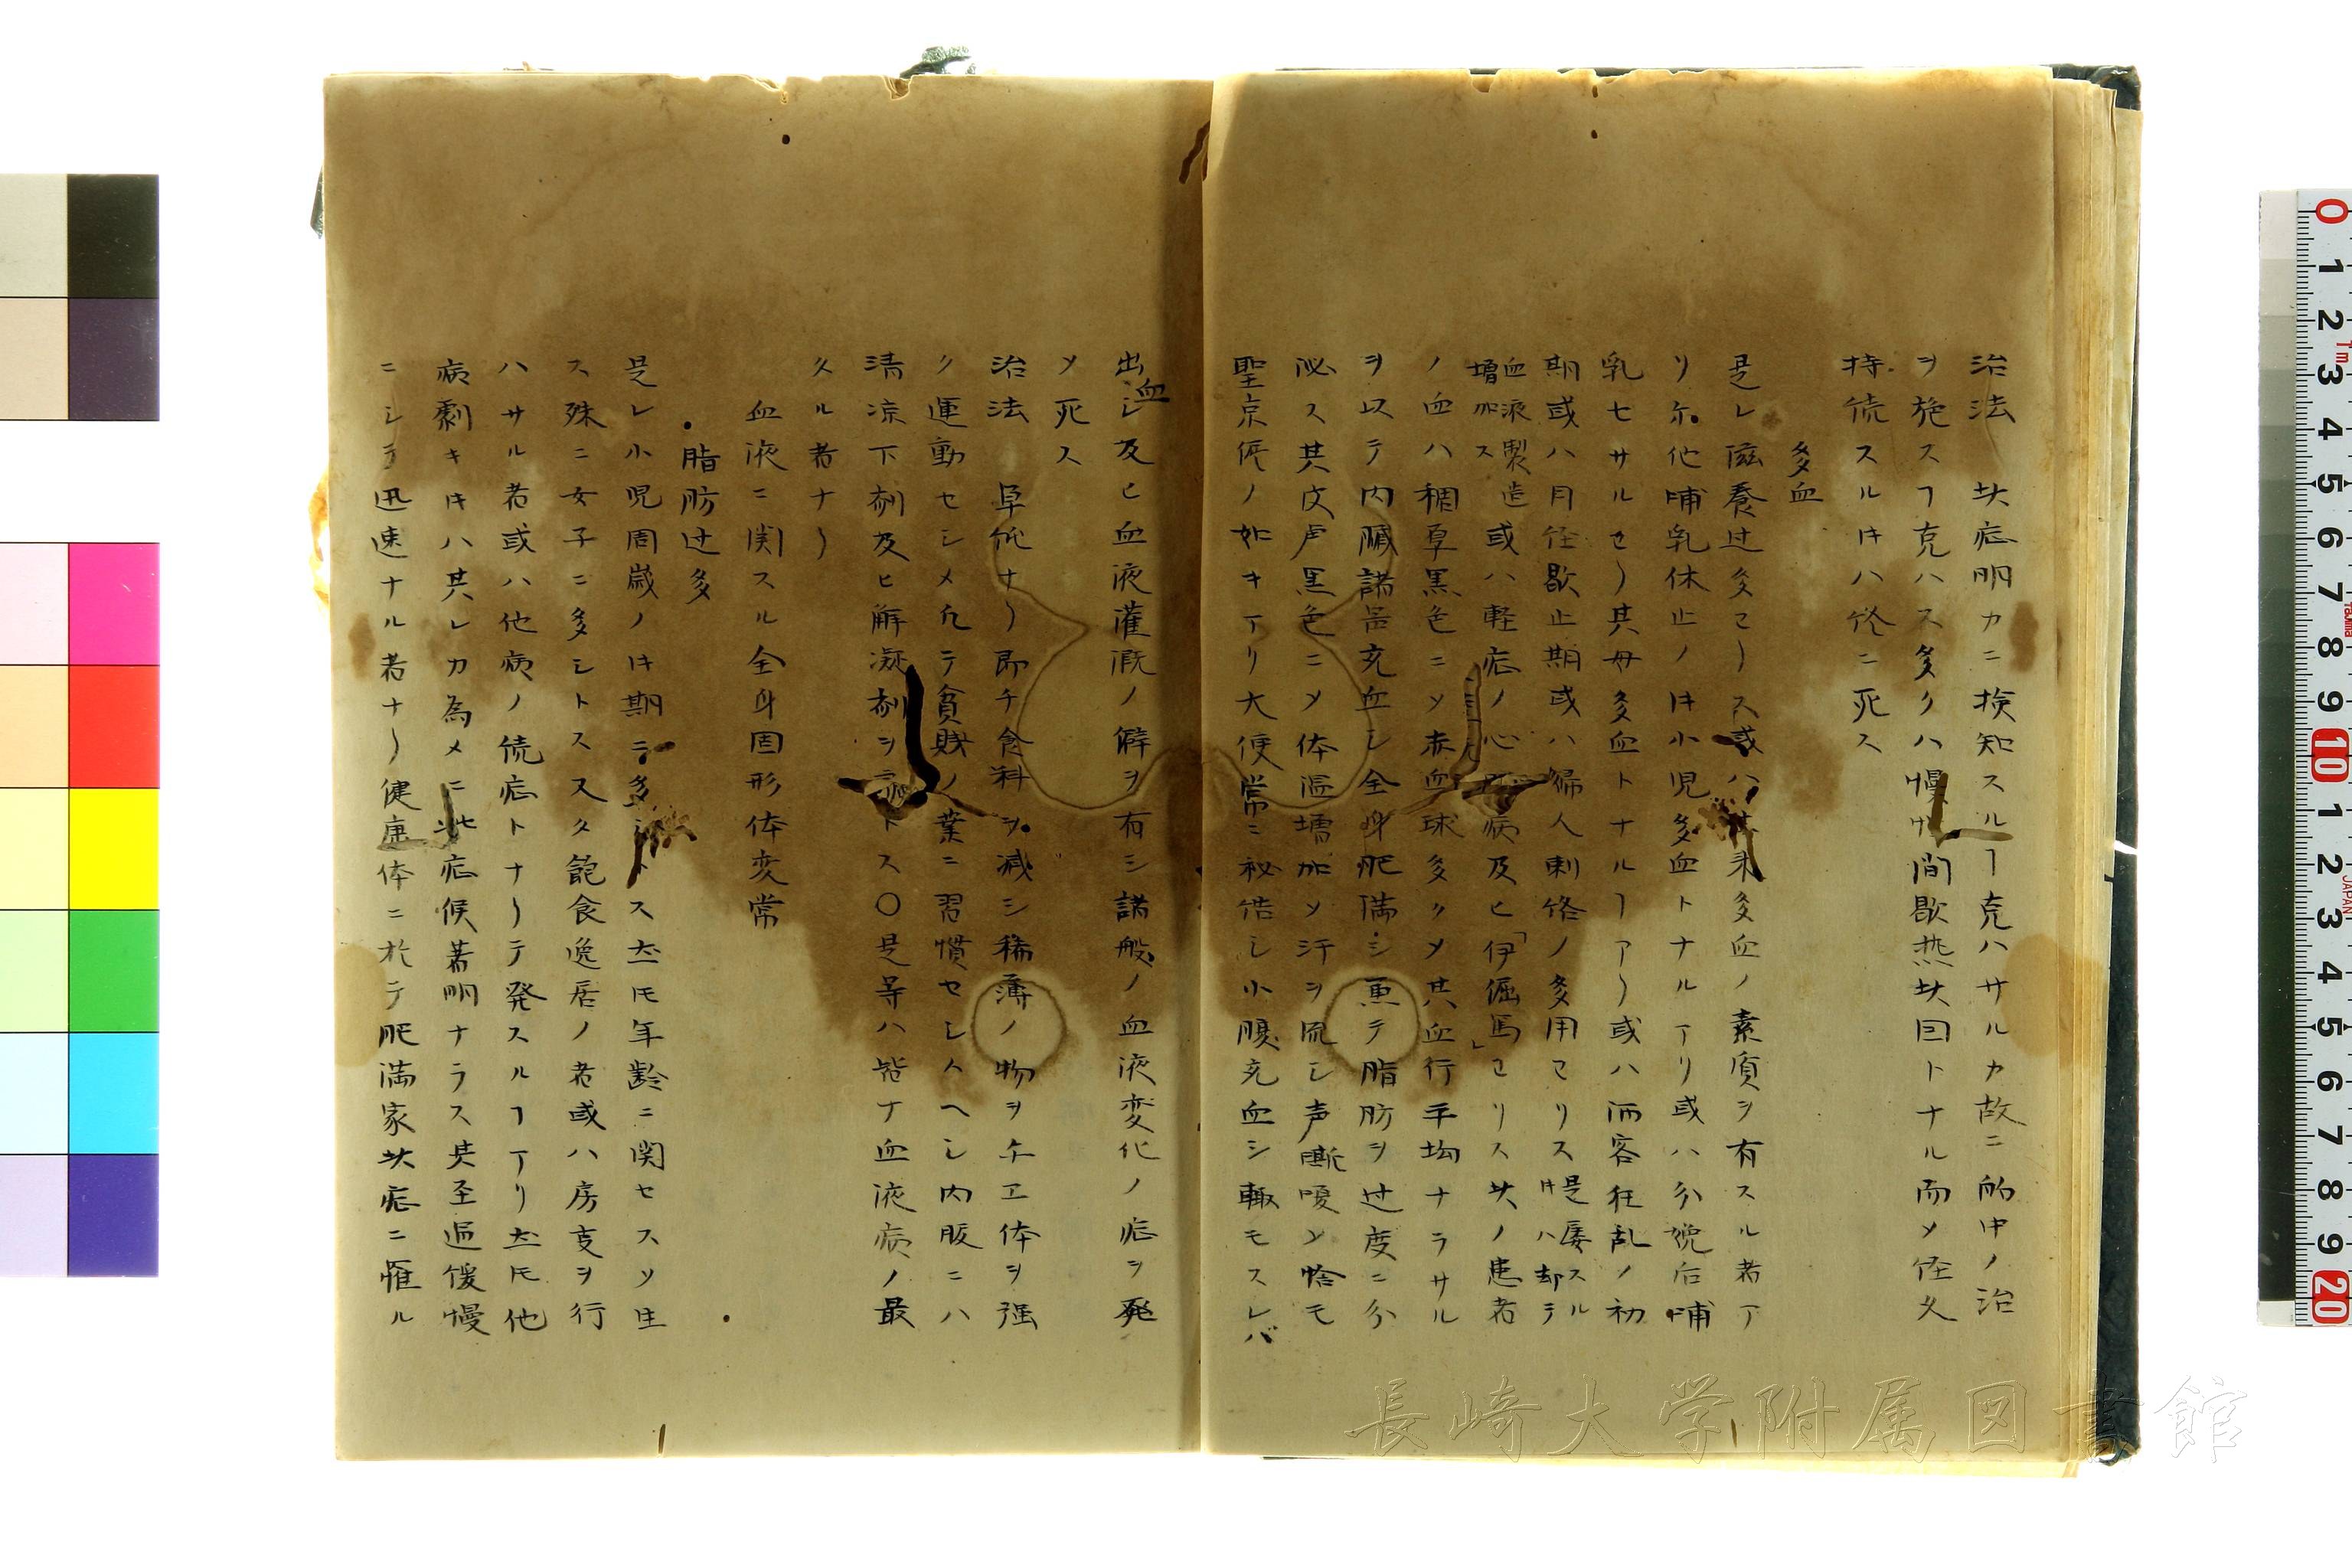 治法　此症明カニ検知スルヿ克ハサルカ故ニ的中ノ治
ヲ施スヿ克ハス多クハ慢性間歇热此因トナル而メ経久
持続スルㇳキハ終ニ死ス
多血
是レ滋養过多ヨリス或ハ 来多血ノ素質ヲ有スル者ア
リ尓他哺乳休止ノ时小児多血トナルアリ或ハ分娩后哺
乳セサルヨリ其母多血トナルヿアリ或ハ洒客狂乱ノ初
期或ハ月経歇止期或ハ婦人刺絡ノ多用ヨリス是屡スル时ハ却テ
血液製造増加ス或ハ軽症ノ心 病及ヒ「伊倔馬」ヨリス此ノ患者
ノ血ハ稠厚黒色ニメ赤血球多クメ其血行平均ナラサル
ヲ以テ内臓諸器充血シ全身肥満シ重テ脂肪ヲ过度ニ分
泌ス其皮膚黒色ニメ体温増加メ汗ヲ流シ声嘶嗄メ恰モ
聖京 ノ如キアリ大便常ニ秘結シ小腹充血シ輙モスレバ
出血シ及ヒ血液灌漑ノ僻ヲ有シ諸般ノ血液変化ノ症ヲ発
メ死ス
治法　単純ナリ即チ食料ヲ減シ稀薄ノ物ヲ与エ体ヲ强
ク運動セシメ凢テ貧賎ノ業ニ習慣セシムヘシ内服ニハ
清凉下剤及ヒ解凝剤ヲ トス〇是等ハ皆ナ血液病ノ最
タル者ナリ
血液ニ関スル全身固形体変常
脂肪过多
是レ小児周歳ノ时期ニ多シトス𪜈年齢ニ関セスメ生
ス殊ニ女子ニ多シトス又タ飽食逸居ノ者或ハ房事ヲ行
ハサル者或ハ他病ノ続症トナリテ発スルヿアリ𪜈他
病劇キ时ハ其レカ為メニ此症候著明ナラス其至遍 慢
ニシテ迅速ナル者ナリ健康体ニ於テ肥満家此症ニ罹ル
長崎大学附属図書館